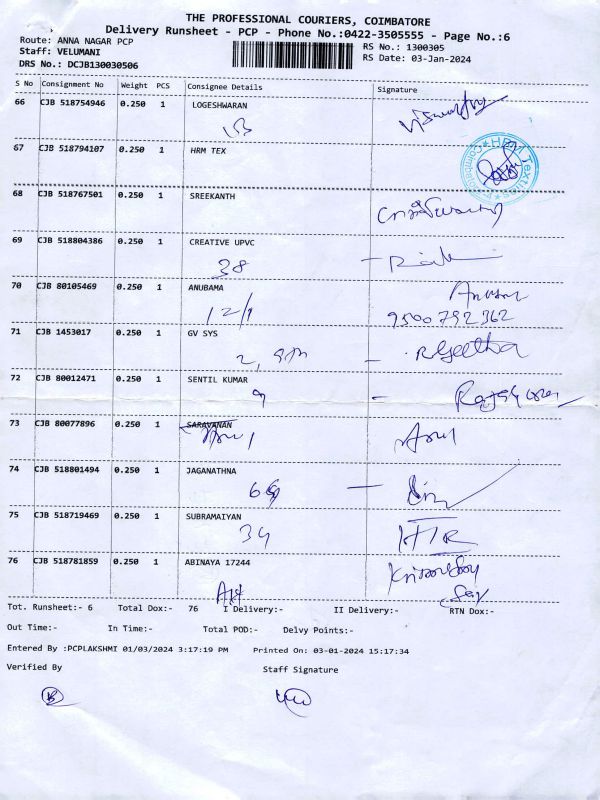 THE PROFESSIONAL COURIERS, COIMBATORE
Delivery Runsheet - PCP - Phone No.:0422-3505555 - Page No.:6
Route: ANNA NAGAR PCP RS No.: 1300305
Staff: VELUMANI RS Date: 03-Jan-2024
DRS No.: DCJB130030506
S No Consignment No Weight PCS Consignee Details Signature
66 CJB 518754946 0.250 1 LOGESHWARAN
67 CJB 518794107 0.250 1 HRM TEX
68 CJB 518767501 0.250 1 SREEKANTH
69 CJB 518804386 0.250 1 CREATIVE UPVC
38
70 CJB 80105469 0.250 1 ANUBAMA
12/1 9500792362
71 CJB 1453017 0.250 1 GV SYS
R Geetha
72 CJB 80012471 0.250 1 SENTIL KUMAR
9
73 CJB 80077896 0.250 1 SARAVANAN
Arul
74 CJB 518801494 0.250 1 JAGANATHNA
75 CJB 518719469 0.250 1 SUBRAMAIYAN
34
76 CJB 518781859 0.250 1 ABINAYA 17244
Tot. Runsheet:- 6 Total Dox:- 76 I Delivery:- II Delivery:- RTN Dox:-
Out Time:- In Time:- Total POD:- Delvy Points:-
Entered By :PCPLAKSHMI 01/03/2024 3:17:19 PM Printed On: 03-01-2024 15:17:34
Verified By Staff Signature